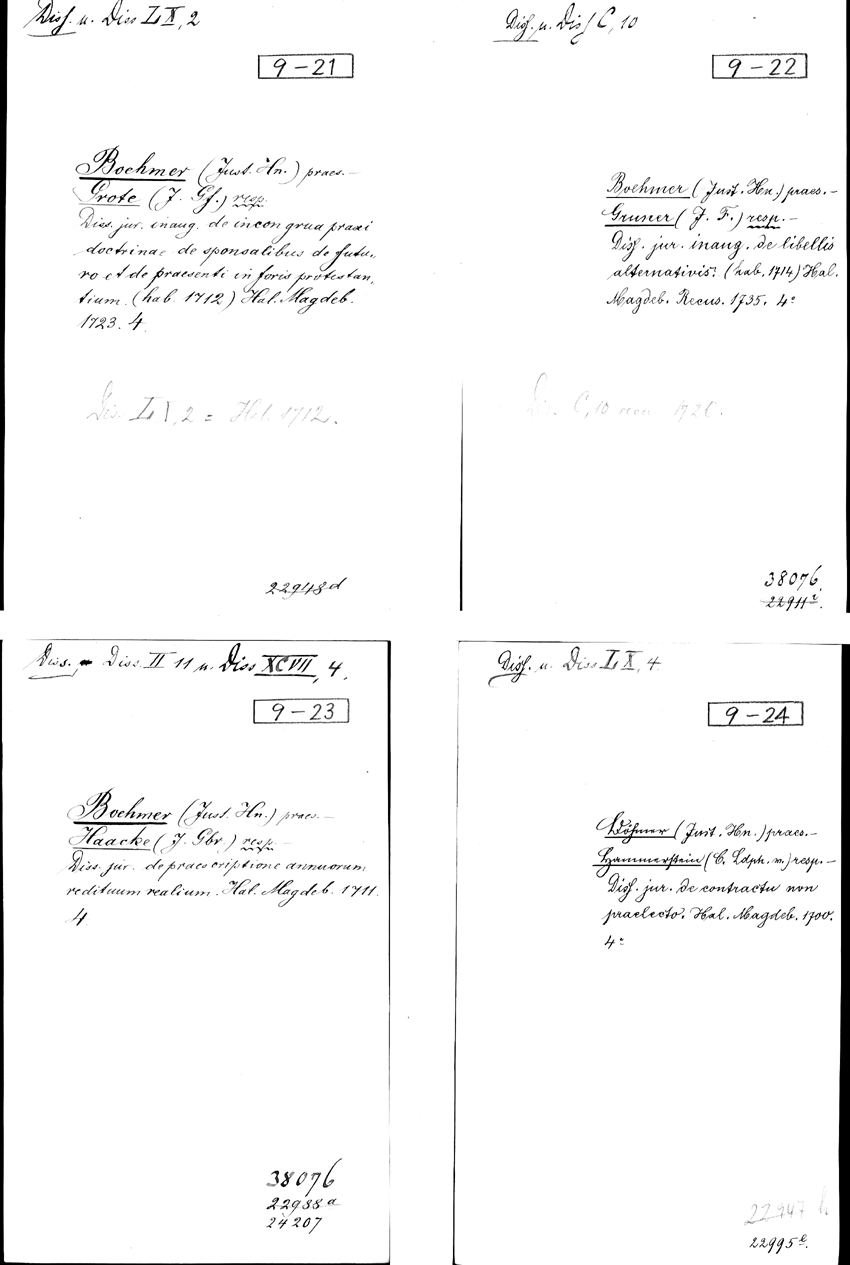 Diss. u. Diss LX, 2
9-21
Boehmer (Just. Hn.) praes. –
Grote (J. Gf.) resp.
Diss. jur. inaug. de incongrua praxi
doctrinae de sponsalibus de futu-
ro et de praesenti in foris protestan-
tium. (hab. 1712) Hal. Magdeb.
1723. 4.
Dis. L X, 2 = Hal. 1712.
22948d
Diss. u. Diss C, 10
9-22
Boehmer (Just. Hn.) praes. –
Gruner (J. F.) resp. –
Diss. jur. inaug. de libellis
alternativis. (hab. 1714) Hal.
Magdeb. Recus. 1735. 4°
Dis. C, 10
38076.
Diss. u. Diss. II 11 u. Diss XCVII, 4.
9-23
Boehmer (Just. Hn.) praes. –
Haacke (J. Gbr.) resp. –
Diss. jur. de praescriptione annuorum
redituum realium. Hal. Magdeb. 1711.
4.
38076
22938a
24207
Diss. u. Diss LX, 4
9-24
Böhmer (Just. Hn.) praes. –
Hammerstein (C. Ldph. v.) resp. –
Diss. jur. de contractu non
praelecto. Hal. Magdeb. 1700.
4°
22947 h
22995e.